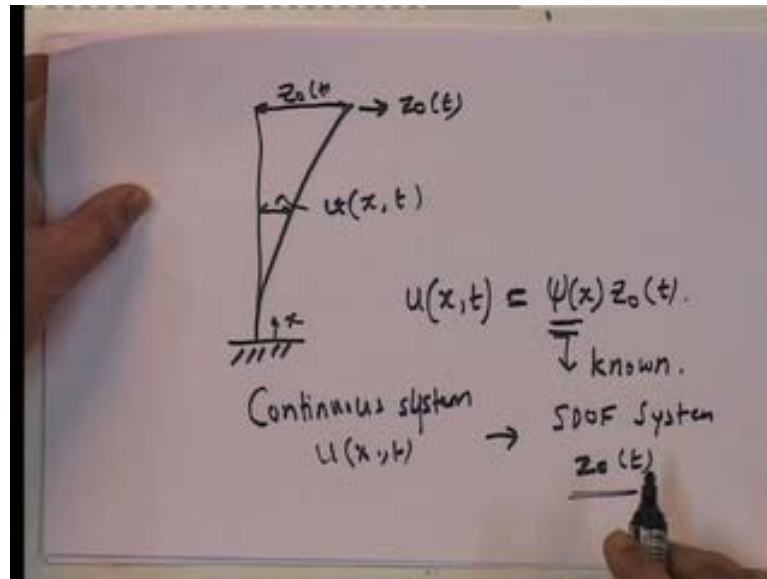 z₀(t
→ z₀(t)
u(x,t)
x
u(x,t) = ψ(x) z₀(t).
↓ known.
Continuous system
u(x,t)
→ SDOF System
z₀(t)